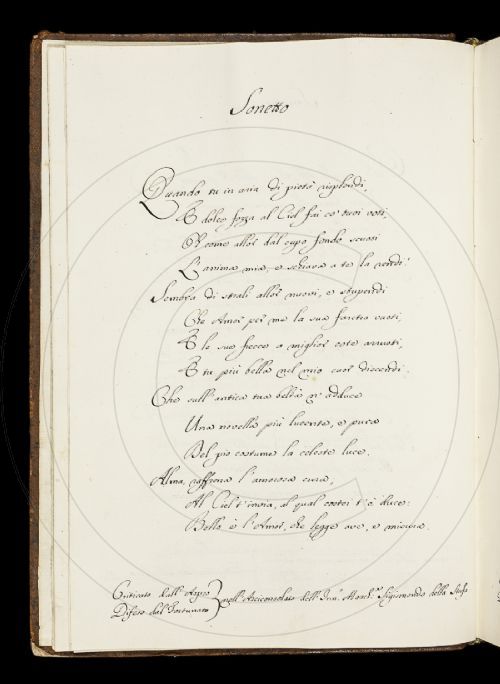 Sonetto
Quando tu in aria di pietà risplendi,
E dolce forza al Ciel fai co' tuoi voti,
Oh come allor dal cupo fondo scuoti
L'anima mia, e schiava a te la rendi!
Sembra di strali allor nuovi, e stupendi
Che Amor per me la sua faretra vuoti,
E le sue frecce a miglior cote arruoti,
E tu più bella nel mio cuor discendi.
Che sull'antica tua beltà n'adduce
Una novella più lucente, e pura
Bel pio costume la celeste luce.
Alma, raffrena l'amorosa cura,
Al Ciel t'invia, al qual costei t'è duce:
Bello è l'Amor, che legge ave, e misura.
Criticato dall'Aspro
Difeso dal Fortunato
nell'Arciconsolato dell' March. Sigismondo della Stufa